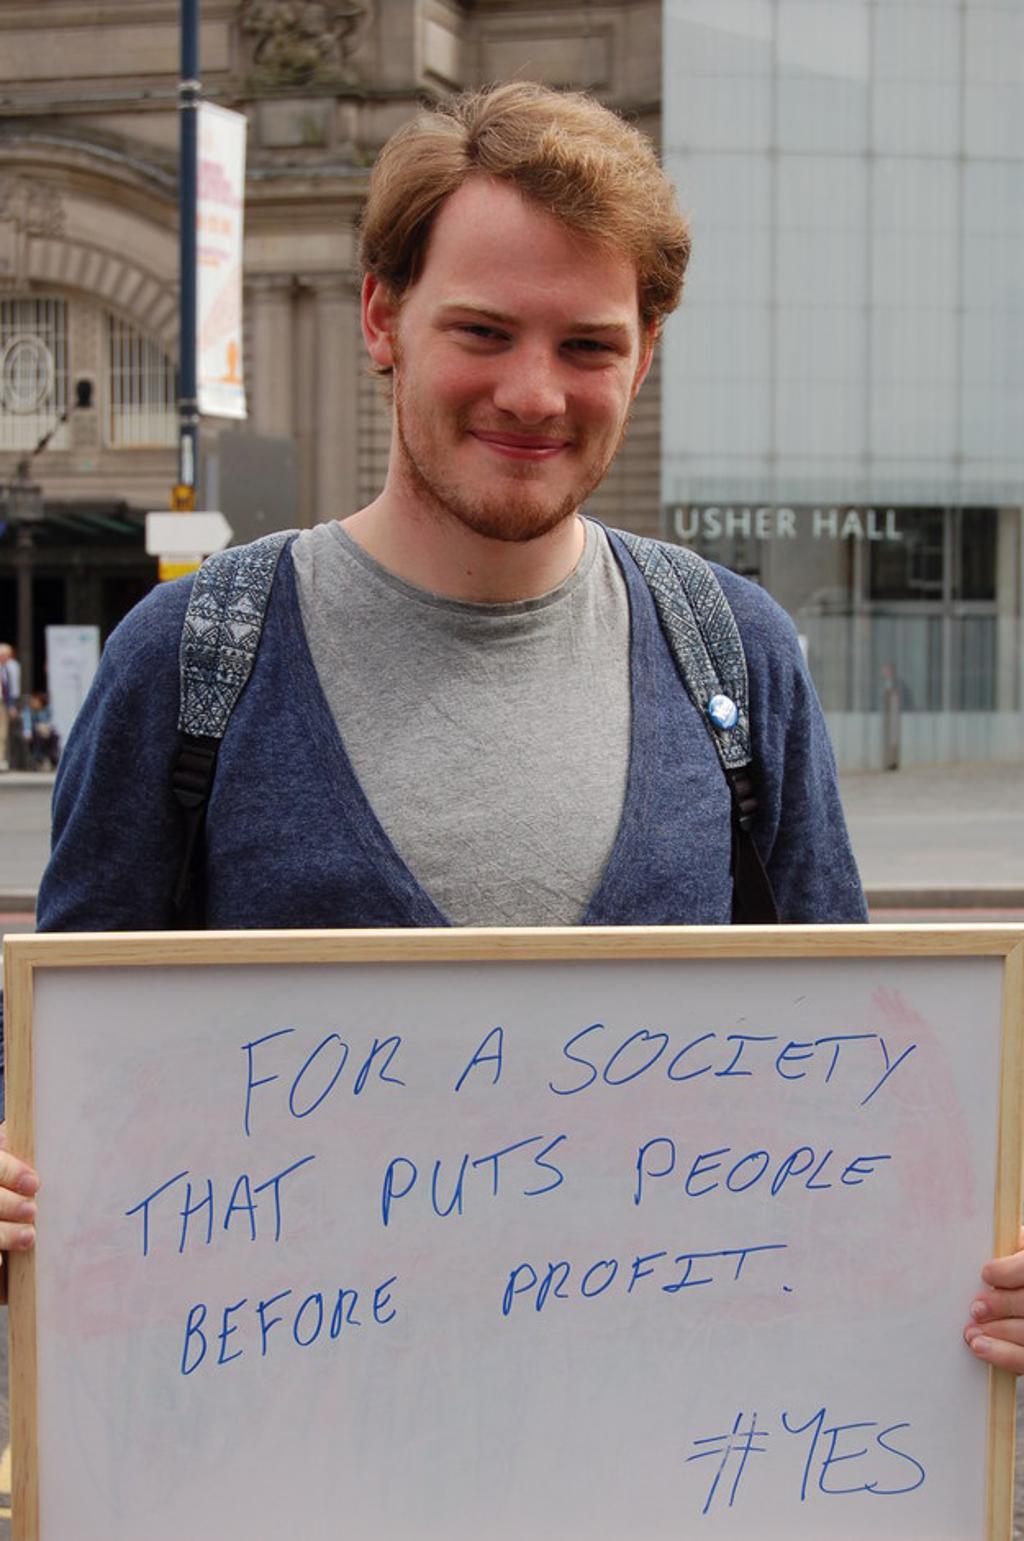 USHER HALL
FOR A SOCIETY
THAT PUTS PEOPLE
BEFORE PROFIT.
#YES